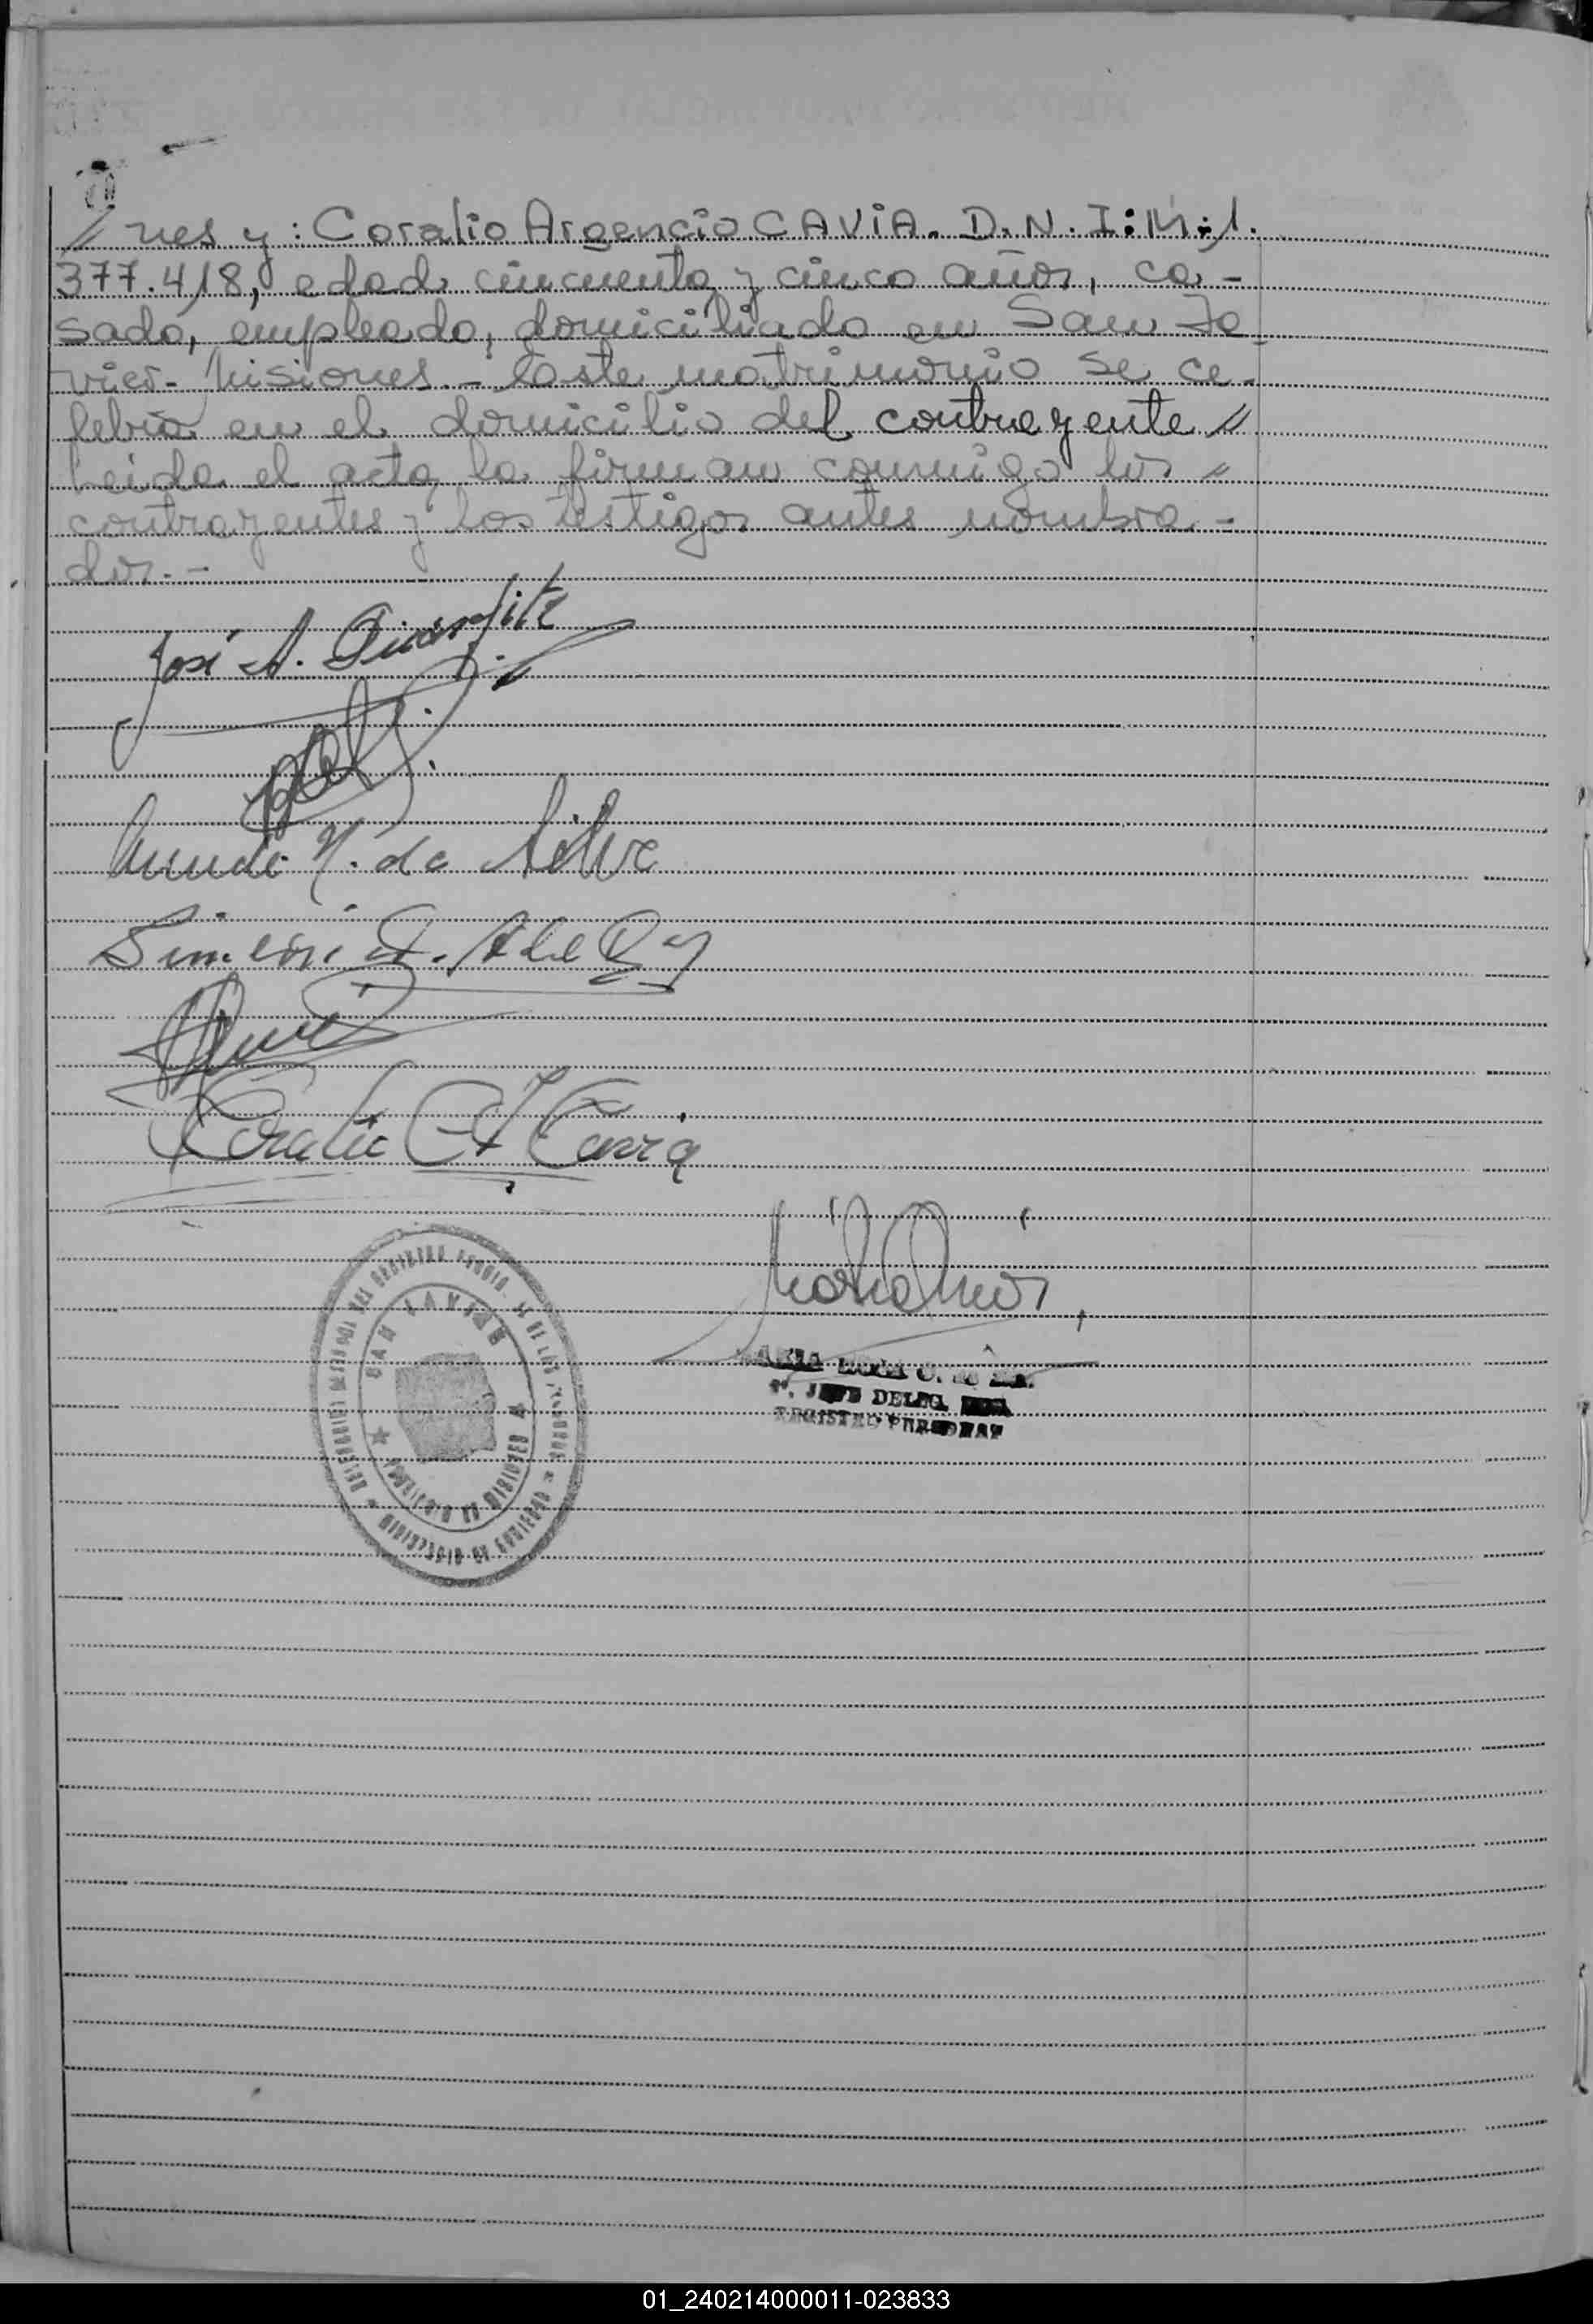 // nes y: Coralio Argencio CAVIA. D.N.I: M: 1.
377.418, edad cincuenta y cinco años, ca-
sado, empleado, domiciliado en San Ja
vier- Misiones.- Este matrimonio se ce-
lebró en el domicilio del contrayente //
Leida el acta, la firman conmigo los //
contrayentes y los testigos antes nombra-
dos.-
José A.
N. da Silva
Simeón
Coralio A Cavia
SAN JAVIER
PROVINCIA DE MISIONES
JEFE DELEG.
01_240214000011-023833